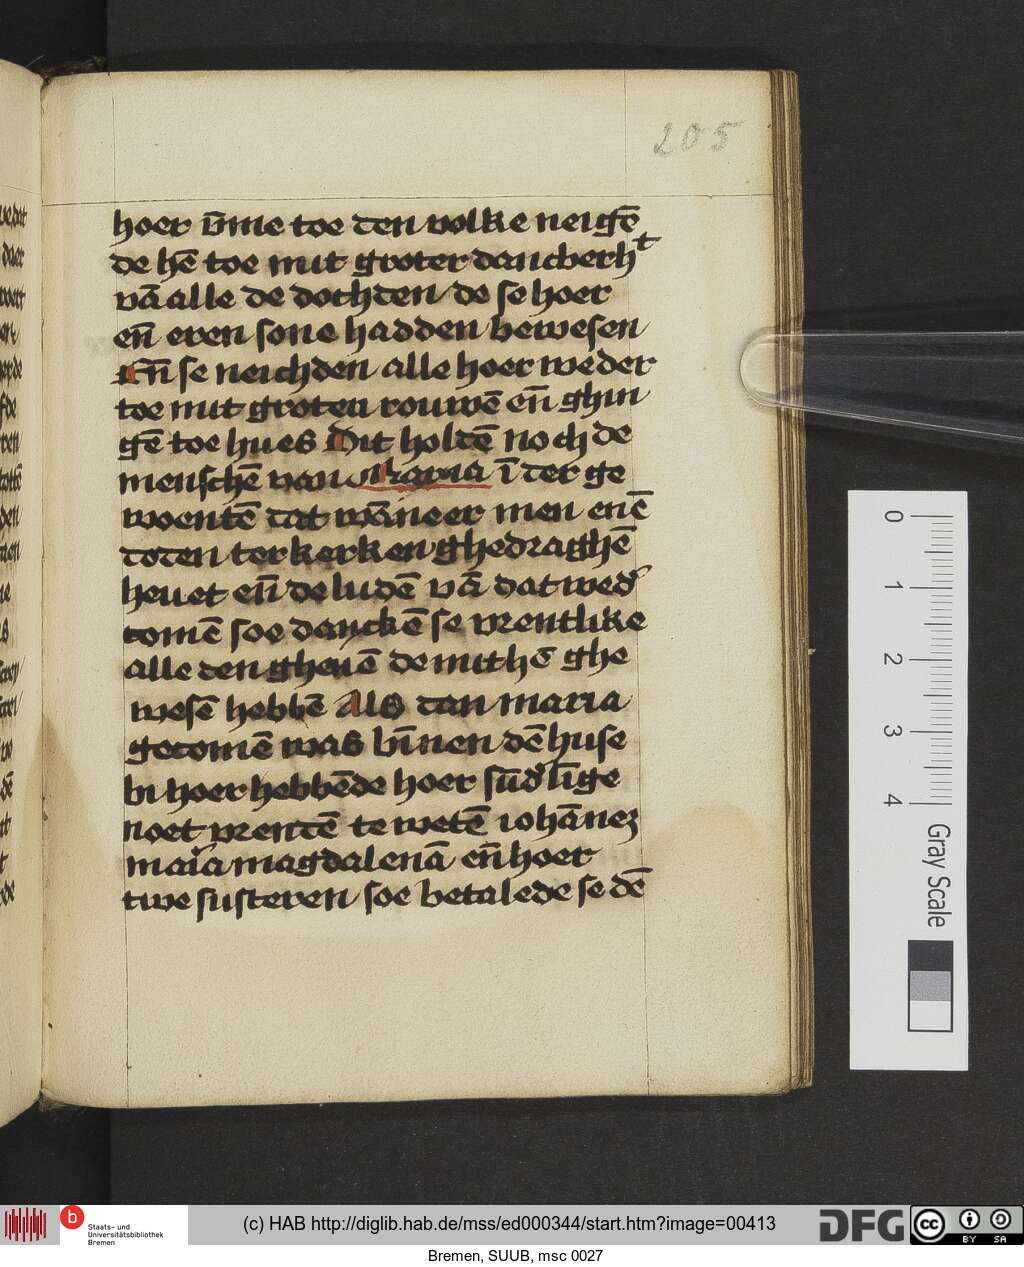 205
hoer v̄me toe den volke neigē
de hē toe mit groter dancberhᵗ
vā alle de dochden de se hoer
en̄ eren sone hadden bewesen
En̄ se neichden alle hoer weder
toe mit groten rouwē en̄ ghin
gē toe hues Dit holdē noch de
menschē van Maria ī der ge
woentē dat wāneer men enē
doden ter kerken ghedraghē
heuet en̄ de ludē vā dat wed᾽
comē soe danckē se vrentlike
alle den ghenē de mit hē ghe
wesē hebbē Als dan maria
gecomē was bīnen dē huse
bi hoer hebbēde hoer sūd᾽līge
noet vrentē te wetē iohānez
maīa magdalenā en̄ hoer
twe susteren soe betalede se dē
0 1 2 3 4 Gray Scale
b Staats- und
Universitätsbibliothek
Bremen
(c) HAB http://diglib.hab.de/mss/ed000344/start.htm?image=00413
DFG
cc BY SA
Bremen, SUUB, msc 0027